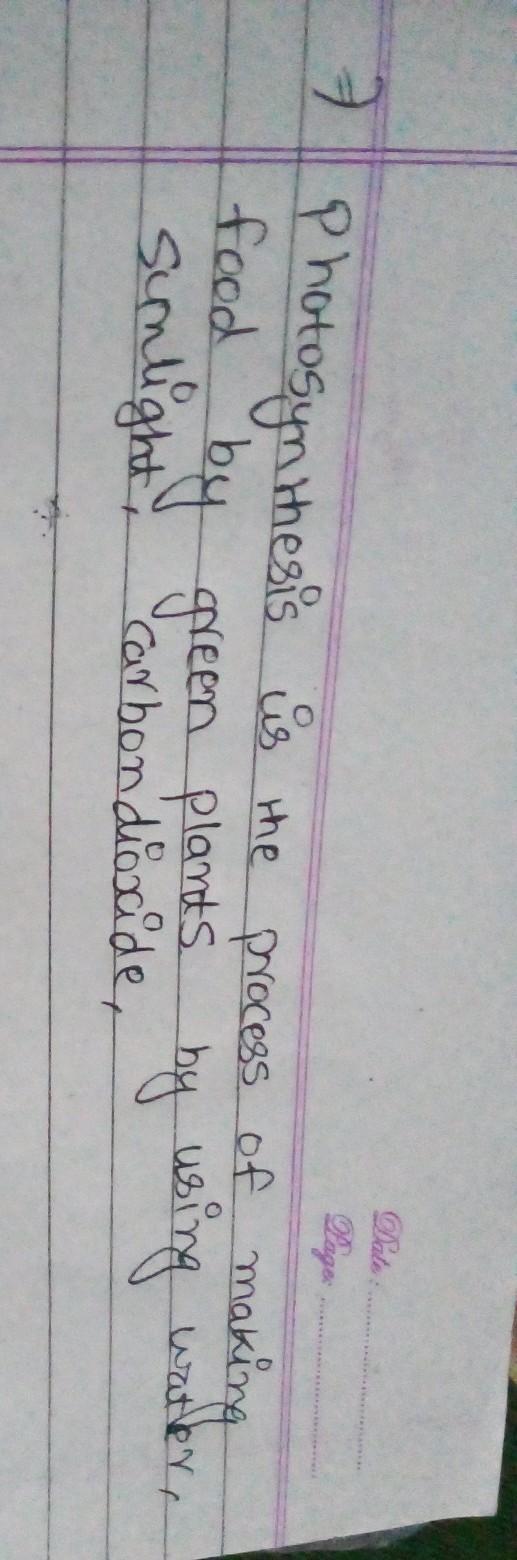 Date :
Page :
⇒ Photosynthesis is the process of making
food by green plants by using water,
sunlight, carbondioxide,